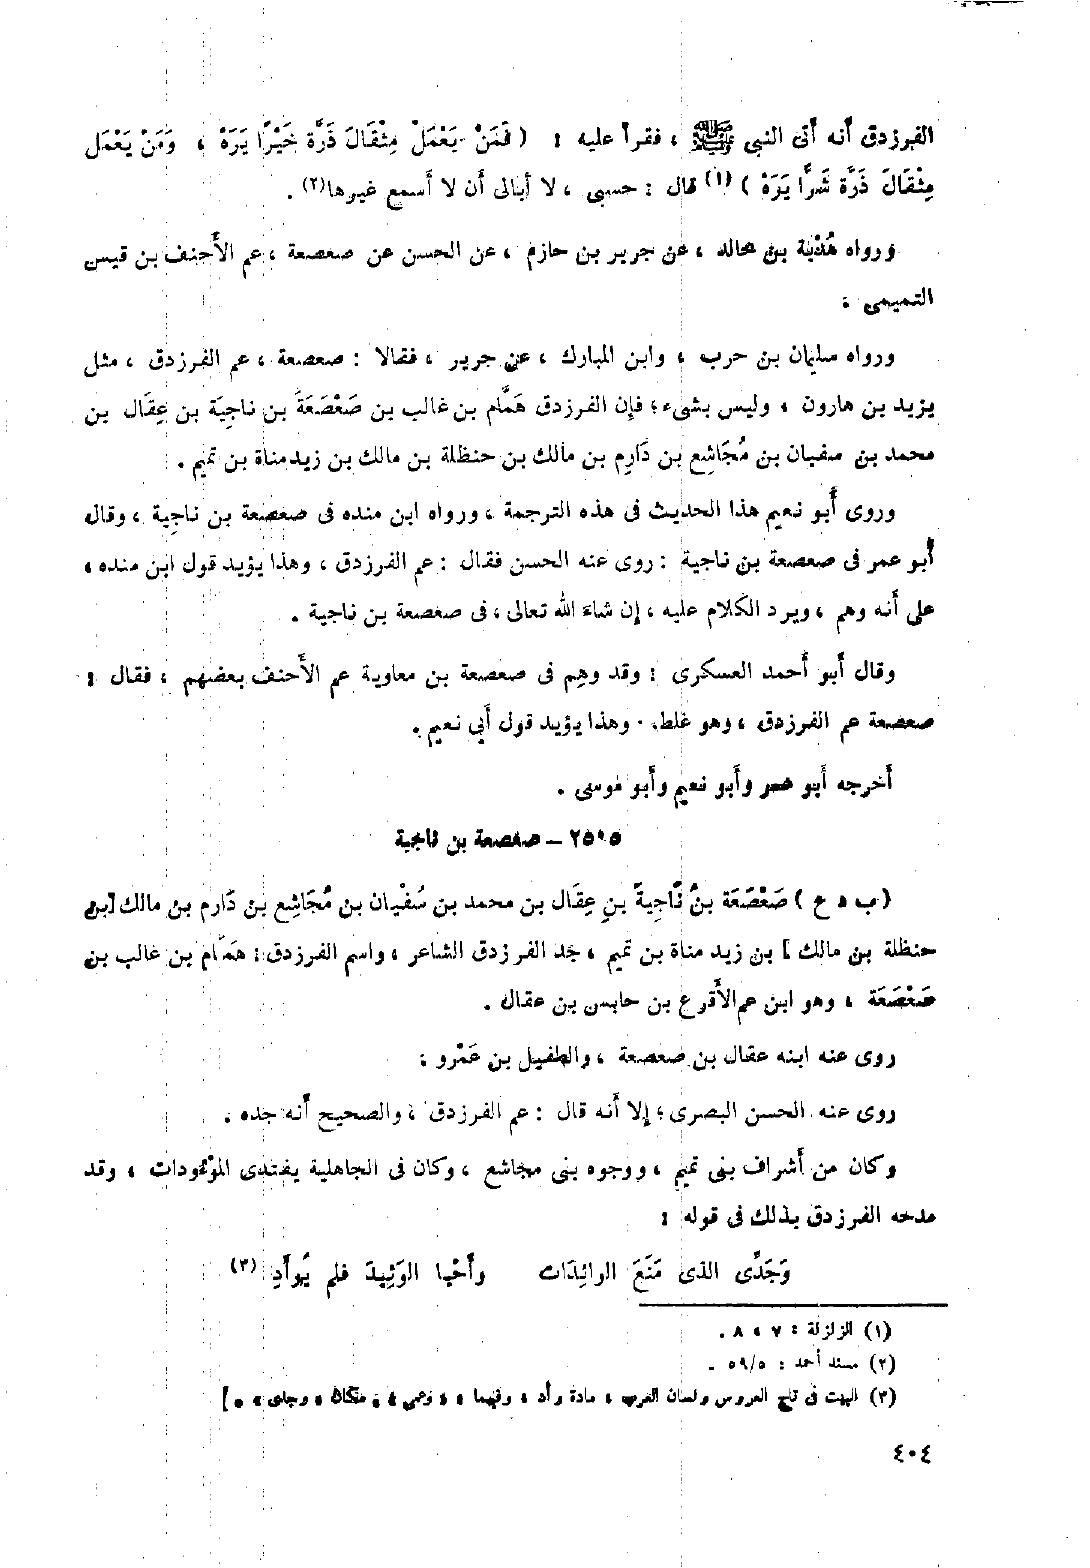 الفرزدق أنه أتى النبي ﷺ ، فقرأ عليه : ( فَمَنْ يَعْمَلْ مِثْقَالَ ذَرَّة خَيْرًا يَرَهْ ، وَمَنْ يَعْمَل
مِثْقَالَ ذَرَّة شَرًّا يَرَهْ ) (١) قال : حسبى ، لا أبالى أن لا أسمع غيرها(٢) .
ورواه هُدْبَة بن خالد ، عن جرير بن حازم ، عن الحسن عن صعصعة ، عم الأحنف بن قيس
التميمى ،
ورواه سليمان بن حرب ، وابن المبارك ، عن جرير ، فقالا : صعصعة ، عم الفرزدق ، مثل
يزيد بن هارون ، وليس بشىء ؛ فإن الفرزدق هَمَّام بن غالب بن صَعْصَعَةَ بن ناجِيَة بن عِقَال بن
محمد بن سفيان بن مُجَاشِع بن دَارِم بن مالك بن حنظلة بن مالك بن زيد مناة بن تميم .
وروى أبو نعيم هذا الحديث فى هذه الترجمة ، ورواه ابن منده فى صعصعة بن ناجية ، وقال
أبو عمر فى صعصعة بن ناجية : روى عنه الحسن فقال : عم الفرزدق ، وهذا يؤيد قول ابن منده ،
على أنه وهم ، ويرد الكلام عليه ، إن شاء الله تعالى ، فى صعصعة بن ناجية .
وقال أبو أحمد العسكرى : وقد وهِم فى صعصعة بن معاوية عم الأحنف بعضهم ، فقال :
صعصعة عم الفرزدق ، وهو غلط . وهذا يؤيد قول أبي نعيم .
أخرجه أبو عمر وأبو نعيم وأبو موسى .
٢٥٠٥ – صعصعة بن ناجية
( ب د ع ) صَعْصَعَة بنُ نَاجِيةَ بنِ عِقَال بن محمد بن سُفْيان بن مُجَاشِع بن دَارم بن مالك [ بن
حنظلة بن مالك ] بن زيد مناة بن تميم ، جَد الفرزدق الشاعر ، واسم الفرزدق : همَّام بن غالب بن
صَعْصَعَة ، وهو ابن عم الأقرع بن حابس بن عقال .
روى عنه ابنه عقال بن صعصعة ، والطفيل بن عَمْرو ،
روى عنه الحسن البصرى ؛ إلا أنه قال : عم الفرزدق ، والصحيح أنه جده .
وكان من أشراف بنى تميم ، ووجوه بنى مجاشع ، وكان فى الجاهلية يفتدى الموْءُودات ، وقد
مدحه الفرزدق بذلك فى قوله :
وَجَدِّى الذى مَنَعَ الوائِدَات وأَحْيا الوَئِيدَ فلم يُوأَدِ (٣)
(١) الزلزلة : ٧ ، ٨ .
(٢) مسند أحمد : ٥/٥٩ .
(٣) البيت فى تاج العروس ولسان العرب ، مادة وأد ، وفيهما : « وعمى » ، مكان « وجدى » .]
٤٠٤